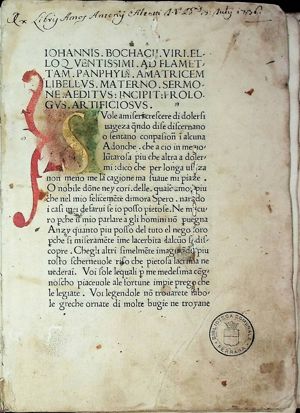 Ex Libris
IOHANNIS. BOCHACII. VIRI. EL
LOQVENTISSIMI. AD FLAMET
TAM. PANPHYLI. AMATRICEM
LIBELLVS. MATERNO. SERMO
NE. AEDITVS: INCIPIT: PROLO
GVS. ARTIFICIOSVS.
Vole a miseri crescere di dolersi
uageza quãdo di se discernano
o sentano conpasion i alcuna
Adonche. che a cio in me uo
lũtaroſa piu che altra a doler
mi: dico che per longa usãza
non meno me la cagione ma
O nobile dõne ne y cori. delle. quale amor piu
che nel mio felicemẽte dimora Spero. narãdo
i casi miei desarui se io posso pietose. Ne mi cu
ro pche ti mio parlare a gli homini nõ puegna
Anzy quanto piu posso del tuto el nego: loro
pche si miseramẽte ime lacerbita dalcũo si di
scopre. Che gli altri simelmẽte imaginãdo piu
tosto scherneuole riso che pietosa lacrima ne
uederai. Voi sole lequali p me medesma cõg
nosco piaceuole ale fortune impie prego che
le legiate. Voi legendole nõ trouarete fabo
le greche ornate di molte bugie ne troyane
BIBLIOTECA COMUNALE
FERRARA